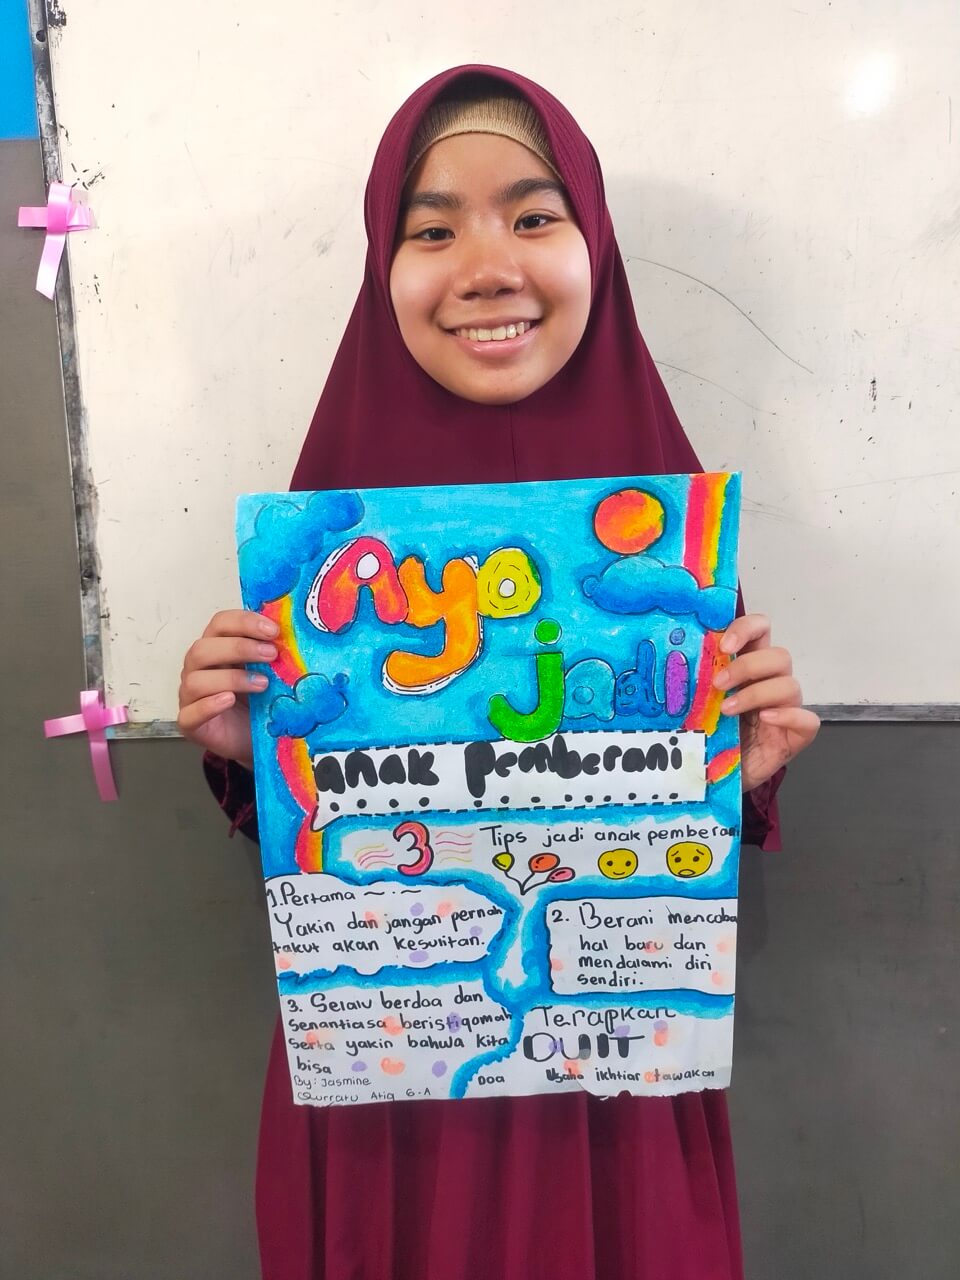 Ayo
jadi
anak pemberani
3 Tips jadi anak pemberani
1. Pertama
Yakin dan jangan pernah
takut akan kesulitan.
2. Berani mencoba
hal baru dan
mendalami diri
sendiri.
3. Selalu berdoa dan
Senantiasa beristiqomah
Serta yakin bahwa kita
bisa
By: Jasmine
Qurratu Atiq 6-A
Terapkan
DUIT
Doa Usaha ikhtiar tawakan